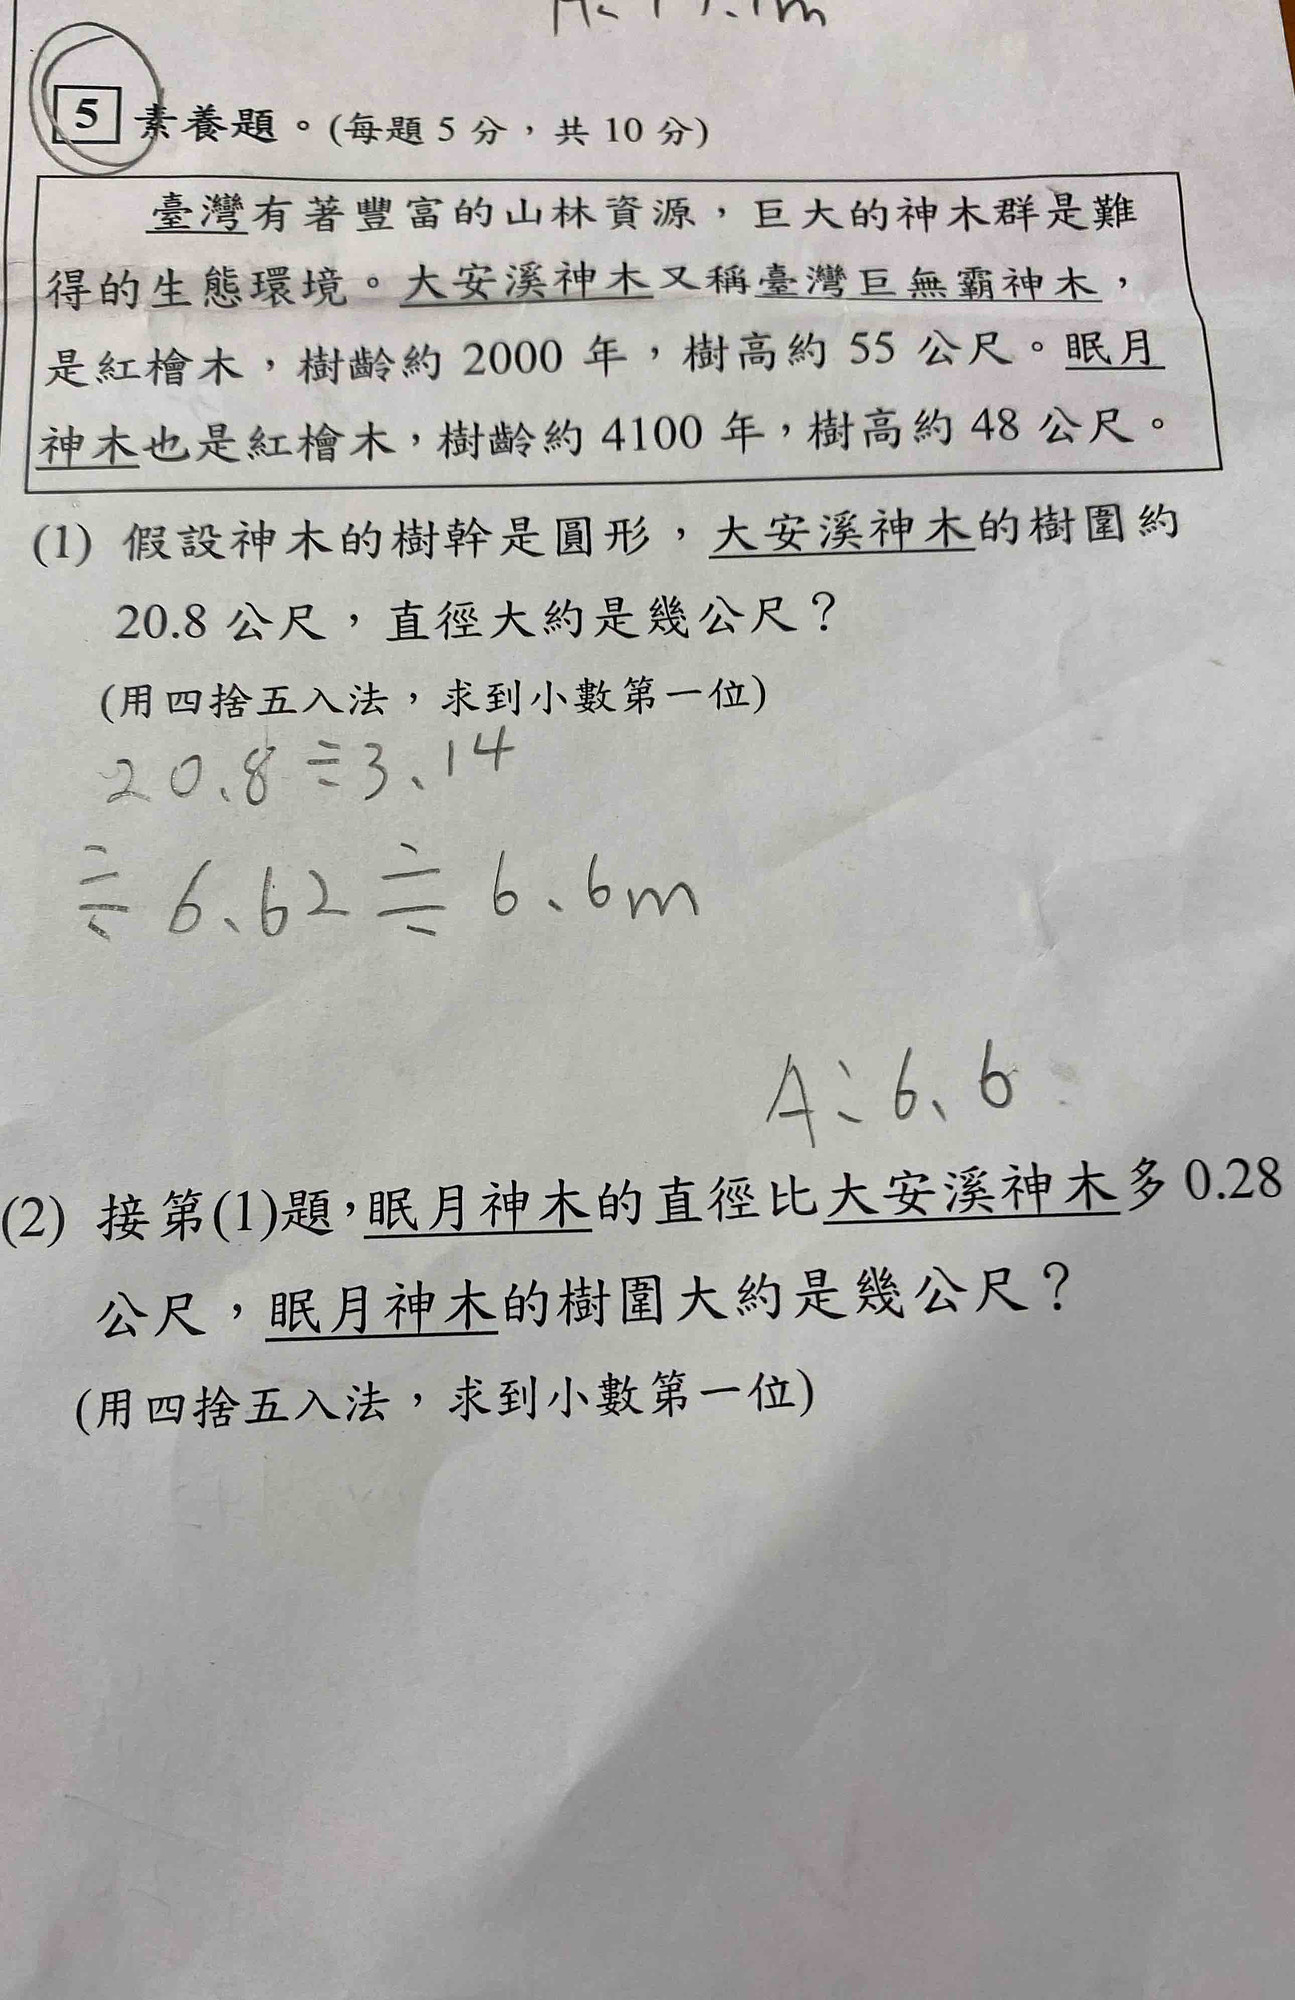 5 素養題。(每題 5 分，共 10 分)
臺灣有著豐富的山林資源，巨大的神木群是難
得的生態環境。大安溪神木又稱臺灣巨無霸神木，
是紅檜木，樹齡約 2000 年，樹高約 55 公尺。眠月
神木也是紅檜木，樹齡約 4100 年，樹高約 48 公尺。
(1) 假設神木的樹幹是圓形，大安溪神木的樹圍約
20.8 公尺，直徑大約是幾公尺？
(用四捨五入法，求到小數第一位)
20.8÷3.14
≒6.62≒6.6m
A:6.6
(2) 接第(1)題，眠月神木的直徑比大安溪神木多 0.28
公尺，眠月神木的樹圍大約是幾公尺？
(用四捨五入法，求到小數第一位)